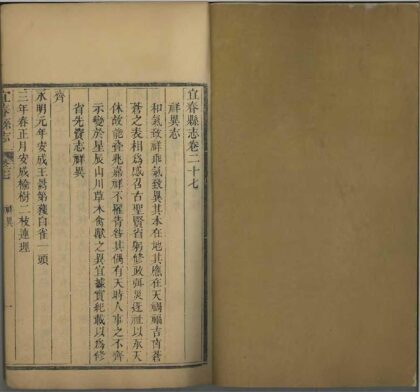 宜春縣志卷二十七
祥異志
和氣致祥乖氣致異其本在地其應在天禍福吉凶蒼
蒼之表相為感召古聖賢躬修政災迓祉以承天
休故能兆嘉祥不罹眚咎其偶有天時人事之不齊
示變於星辰山川草木禽獸之異宜據實紀載以為修
省先資志祥異
齊
永明元年安成王暠第獲白雀一頭
三年春正月安成榆樹二枝連理
宜春縣志 祥異 一